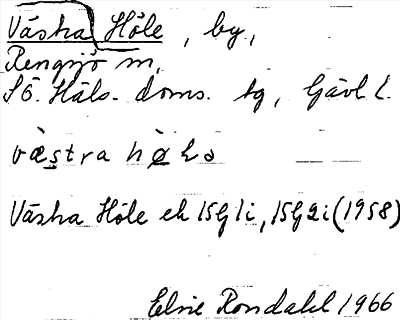 Västra Höle, by,
Rengsjö sn,
Sö. Häls. doms. tg, Gävl l.
væstra hø̀lə
Västra Höle ek 15G1i, 15G2i (1958)
Elsie Rondahl 1966